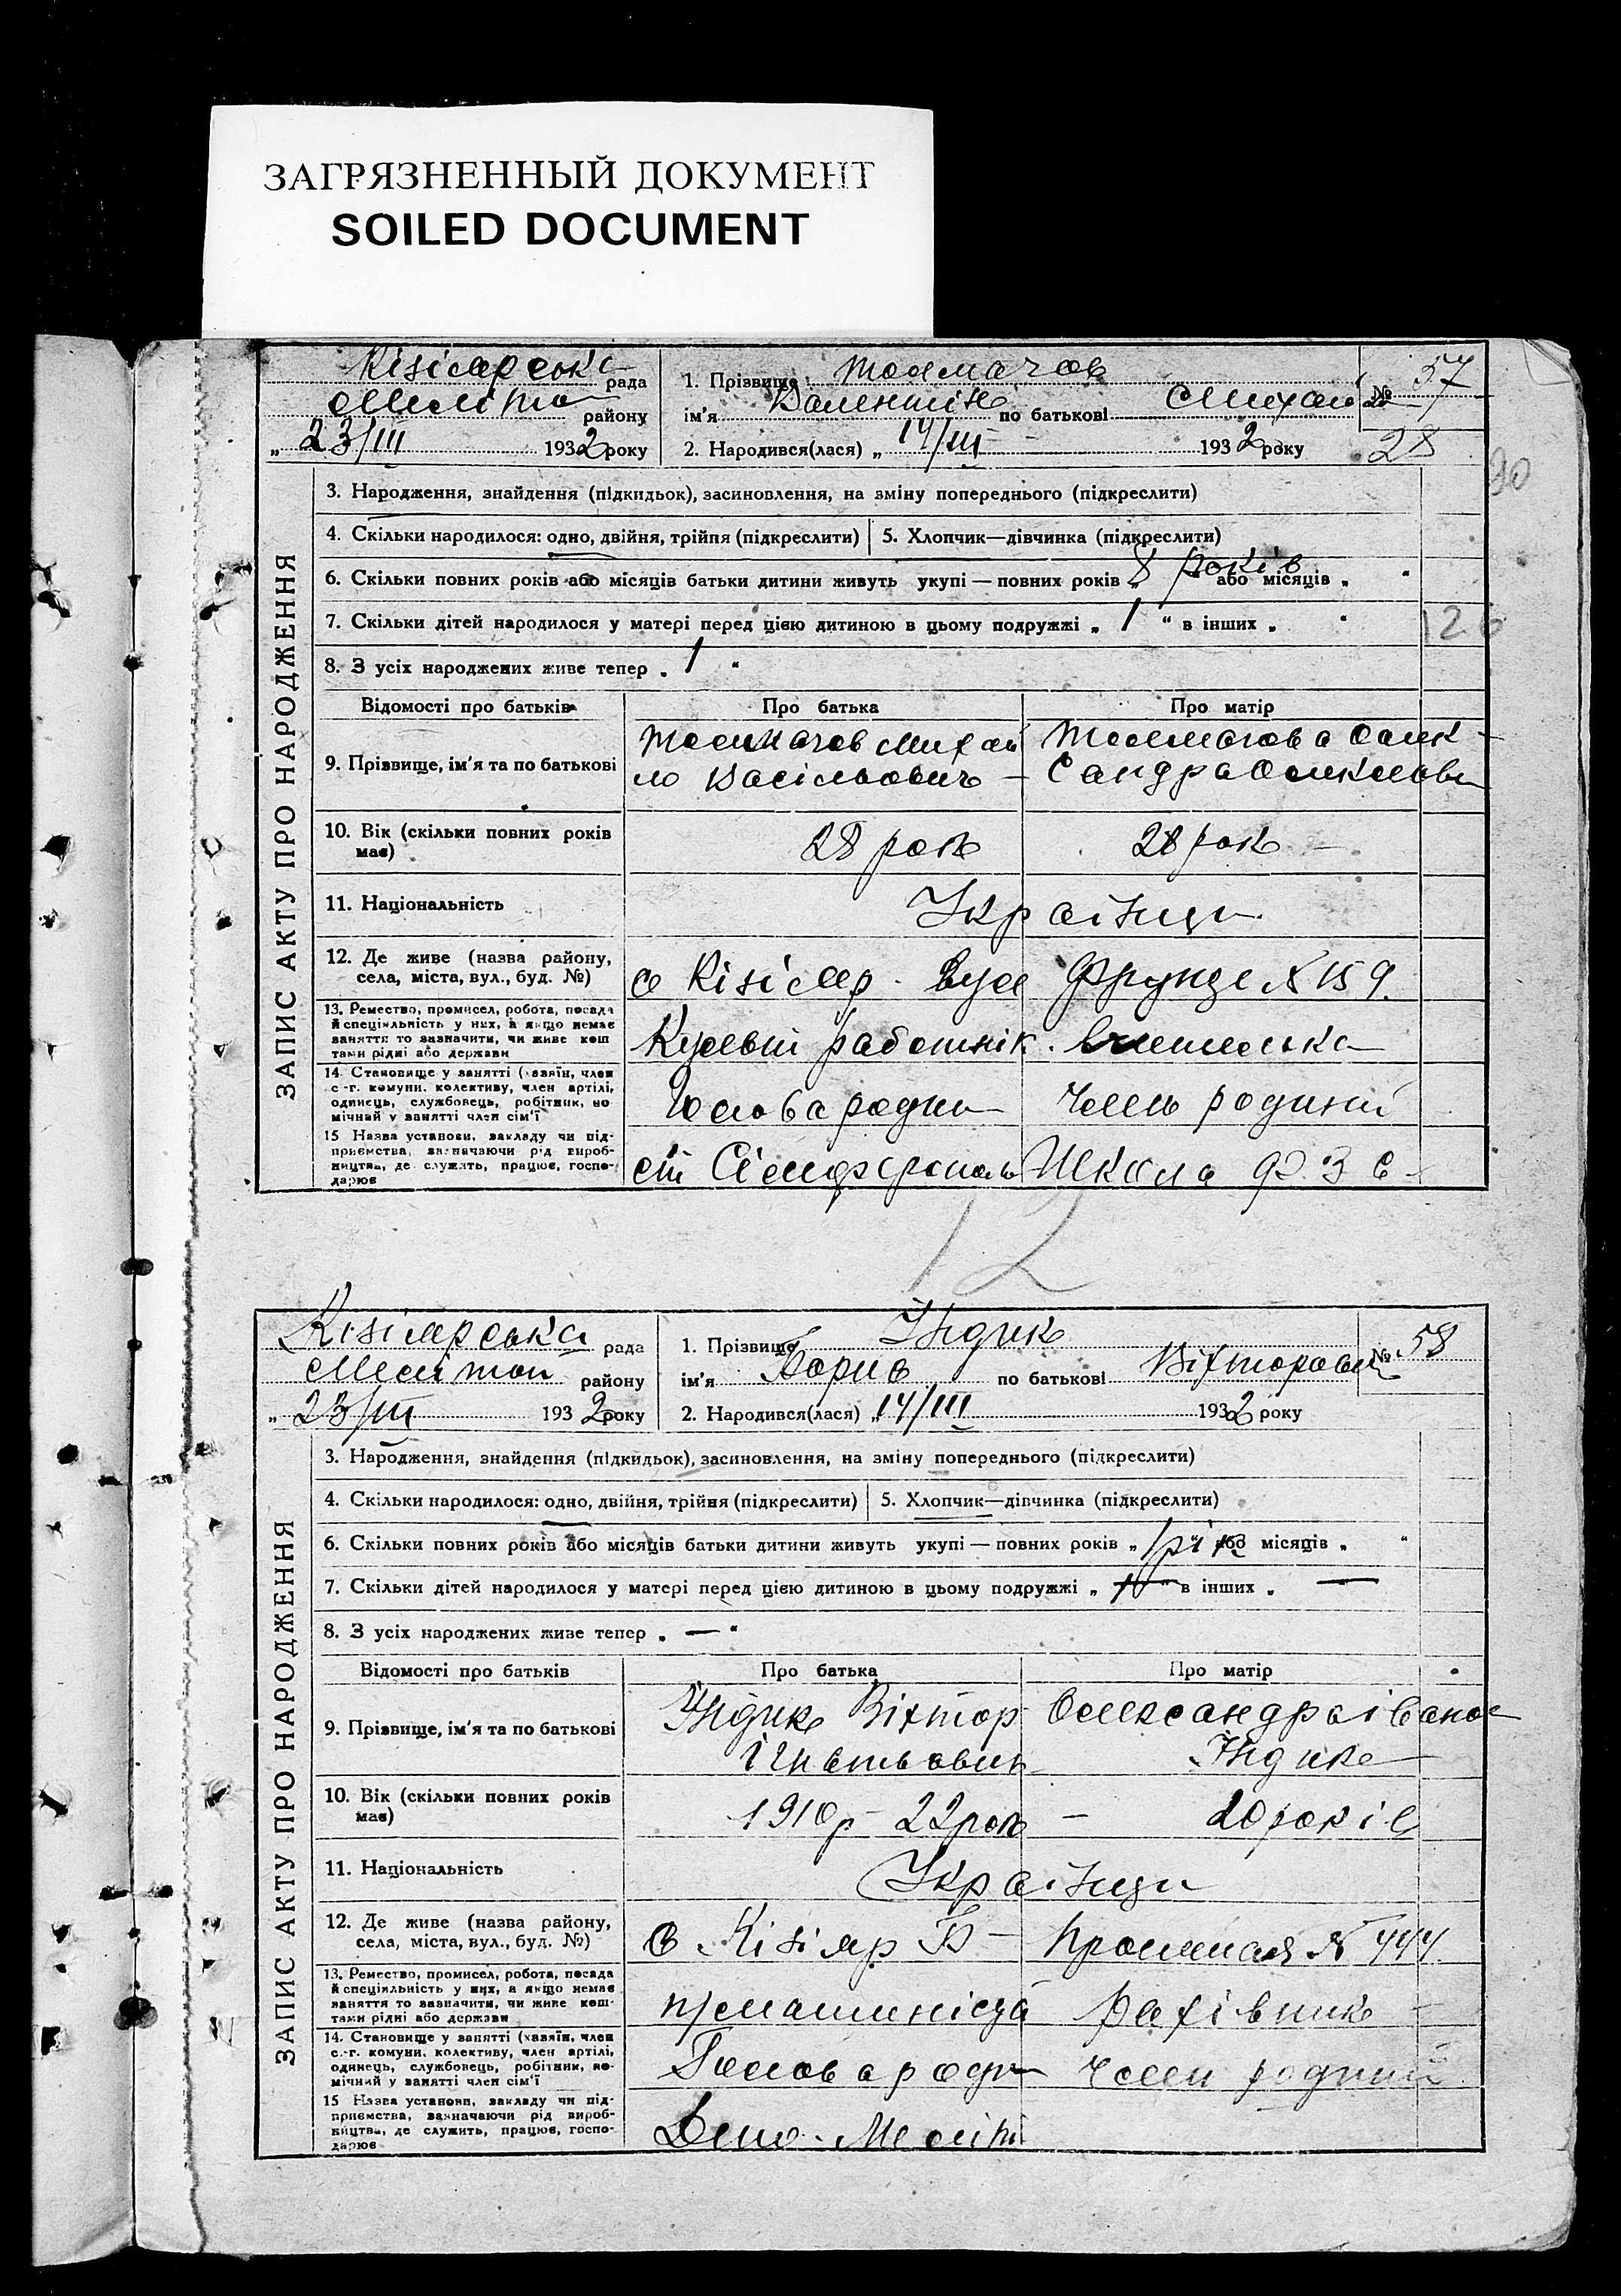 ЗАГРЯЗНЕННЫЙ ДОКУМЕНТ
SOILED DOCUMENT
ЗАПИС АКТУ ПРО НАРОДЖЕННЯ
рада
району
„ 23/III 1932 року
1. Прізвище Толмачов
ім'я Валентін по батькові Михай
2. Народився(лася) „ 14/III 1932 року
№ 57
28
90
3. Народження, знайдення (підкидьок), засиновлення, на зміну попереднього (підкреслити)
4. Скільки народилося: одно, двійня, трійня (підкреслити) 5. Хлопчик—дівчинка (підкреслити)
6. Скільки повних років або місяців батьки дитини живуть укупі — повних років „ 8 років або місяців „ “
7. Скільки дітей народилося у матері перед цією дитиною в цьому подружжі „ 1 “ в інших „ “
126
8. З усіх народжених живе тепер „ 1 “
Відомості про батьків Про батька Про матір
9. Прізвище, ім'я та по батькові
Толмачов Михай Толмачова Олек
ло Васільович – Сандра
10. Вік (скільки повних років має) 28 рок 28 рок –
11. Національність Українци
12. Де живе (назва району, села, міста, вул., буд. №) с Кізіяр. вул Фрунзе № 159.
13. Ремество, промисел, робота, посада й спеціяльність у них, а якщо немає заняття то зазначити, чи живе коштами рідні або держави
работнік. вчителька
14. Становище у занятті (хазяїн, член с.-г. комуни, колективу, член артілі, одинець, службовець, робітник, помічний у занятті член сім'ї
Голова родин Член родини
15 Назва установи, закладу чи підприємства, зазначаючи рід виробництва, де служить, працює, господарює
ст Сімферополь Школа
12
ЗАПИС АКТУ ПРО НАРОДЖЕННЯ
Кізіярська рада
Мелітоп району
„ 23/III 1932 року
1. Прізвище Індик
ім'я Борис по батькові Віхторович
2. Народився(лася) „ 14/III 1932 року
№ 58
3. Народження, знайдення (підкидьок), засиновлення, на зміну попереднього (підкреслити)
4. Скільки народилося: одно, двійня, трійня (підкреслити) 5. Хлопчик—дівчинка (підкреслити)
6. Скільки повних років або місяців батьки дитини живуть укупі — повних років „ 1 рік або місяців „ “
7. Скільки дітей народилося у матері перед цією дитиною в цьому подружжі „ — “ в інших „ —
8. З усіх народжених живе тепер „ — “
Відомості про батьків Про батька Про матір
9. Прізвище, ім'я та по батькові
Індик Віхтор Олександра івано
Ігнатьович Індик
10. Вік (скільки повних років має) 1910р – 22 рок – 20 років
11. Національність Українци
12. Де живе (назва району, села, міста, вул., буд. №) с Кізіяр № 444
13. Ремество, промисел, робота, посада й спеціяльність у них, а якщо немає заняття то зазначити, чи живе коштами рідні або держави
п/машиніста Рахівник –
14. Становище у занятті (хазяїн, член с.-г. комуни, колективу, член артілі, одинець, службовець, робітник, помічний у занятті член сім'ї
Голова роди член родини
15 Назва установи, закладу чи підприємства, зазначаючи рід виробництва, де служить, працює, господарює
Депо. Меліт